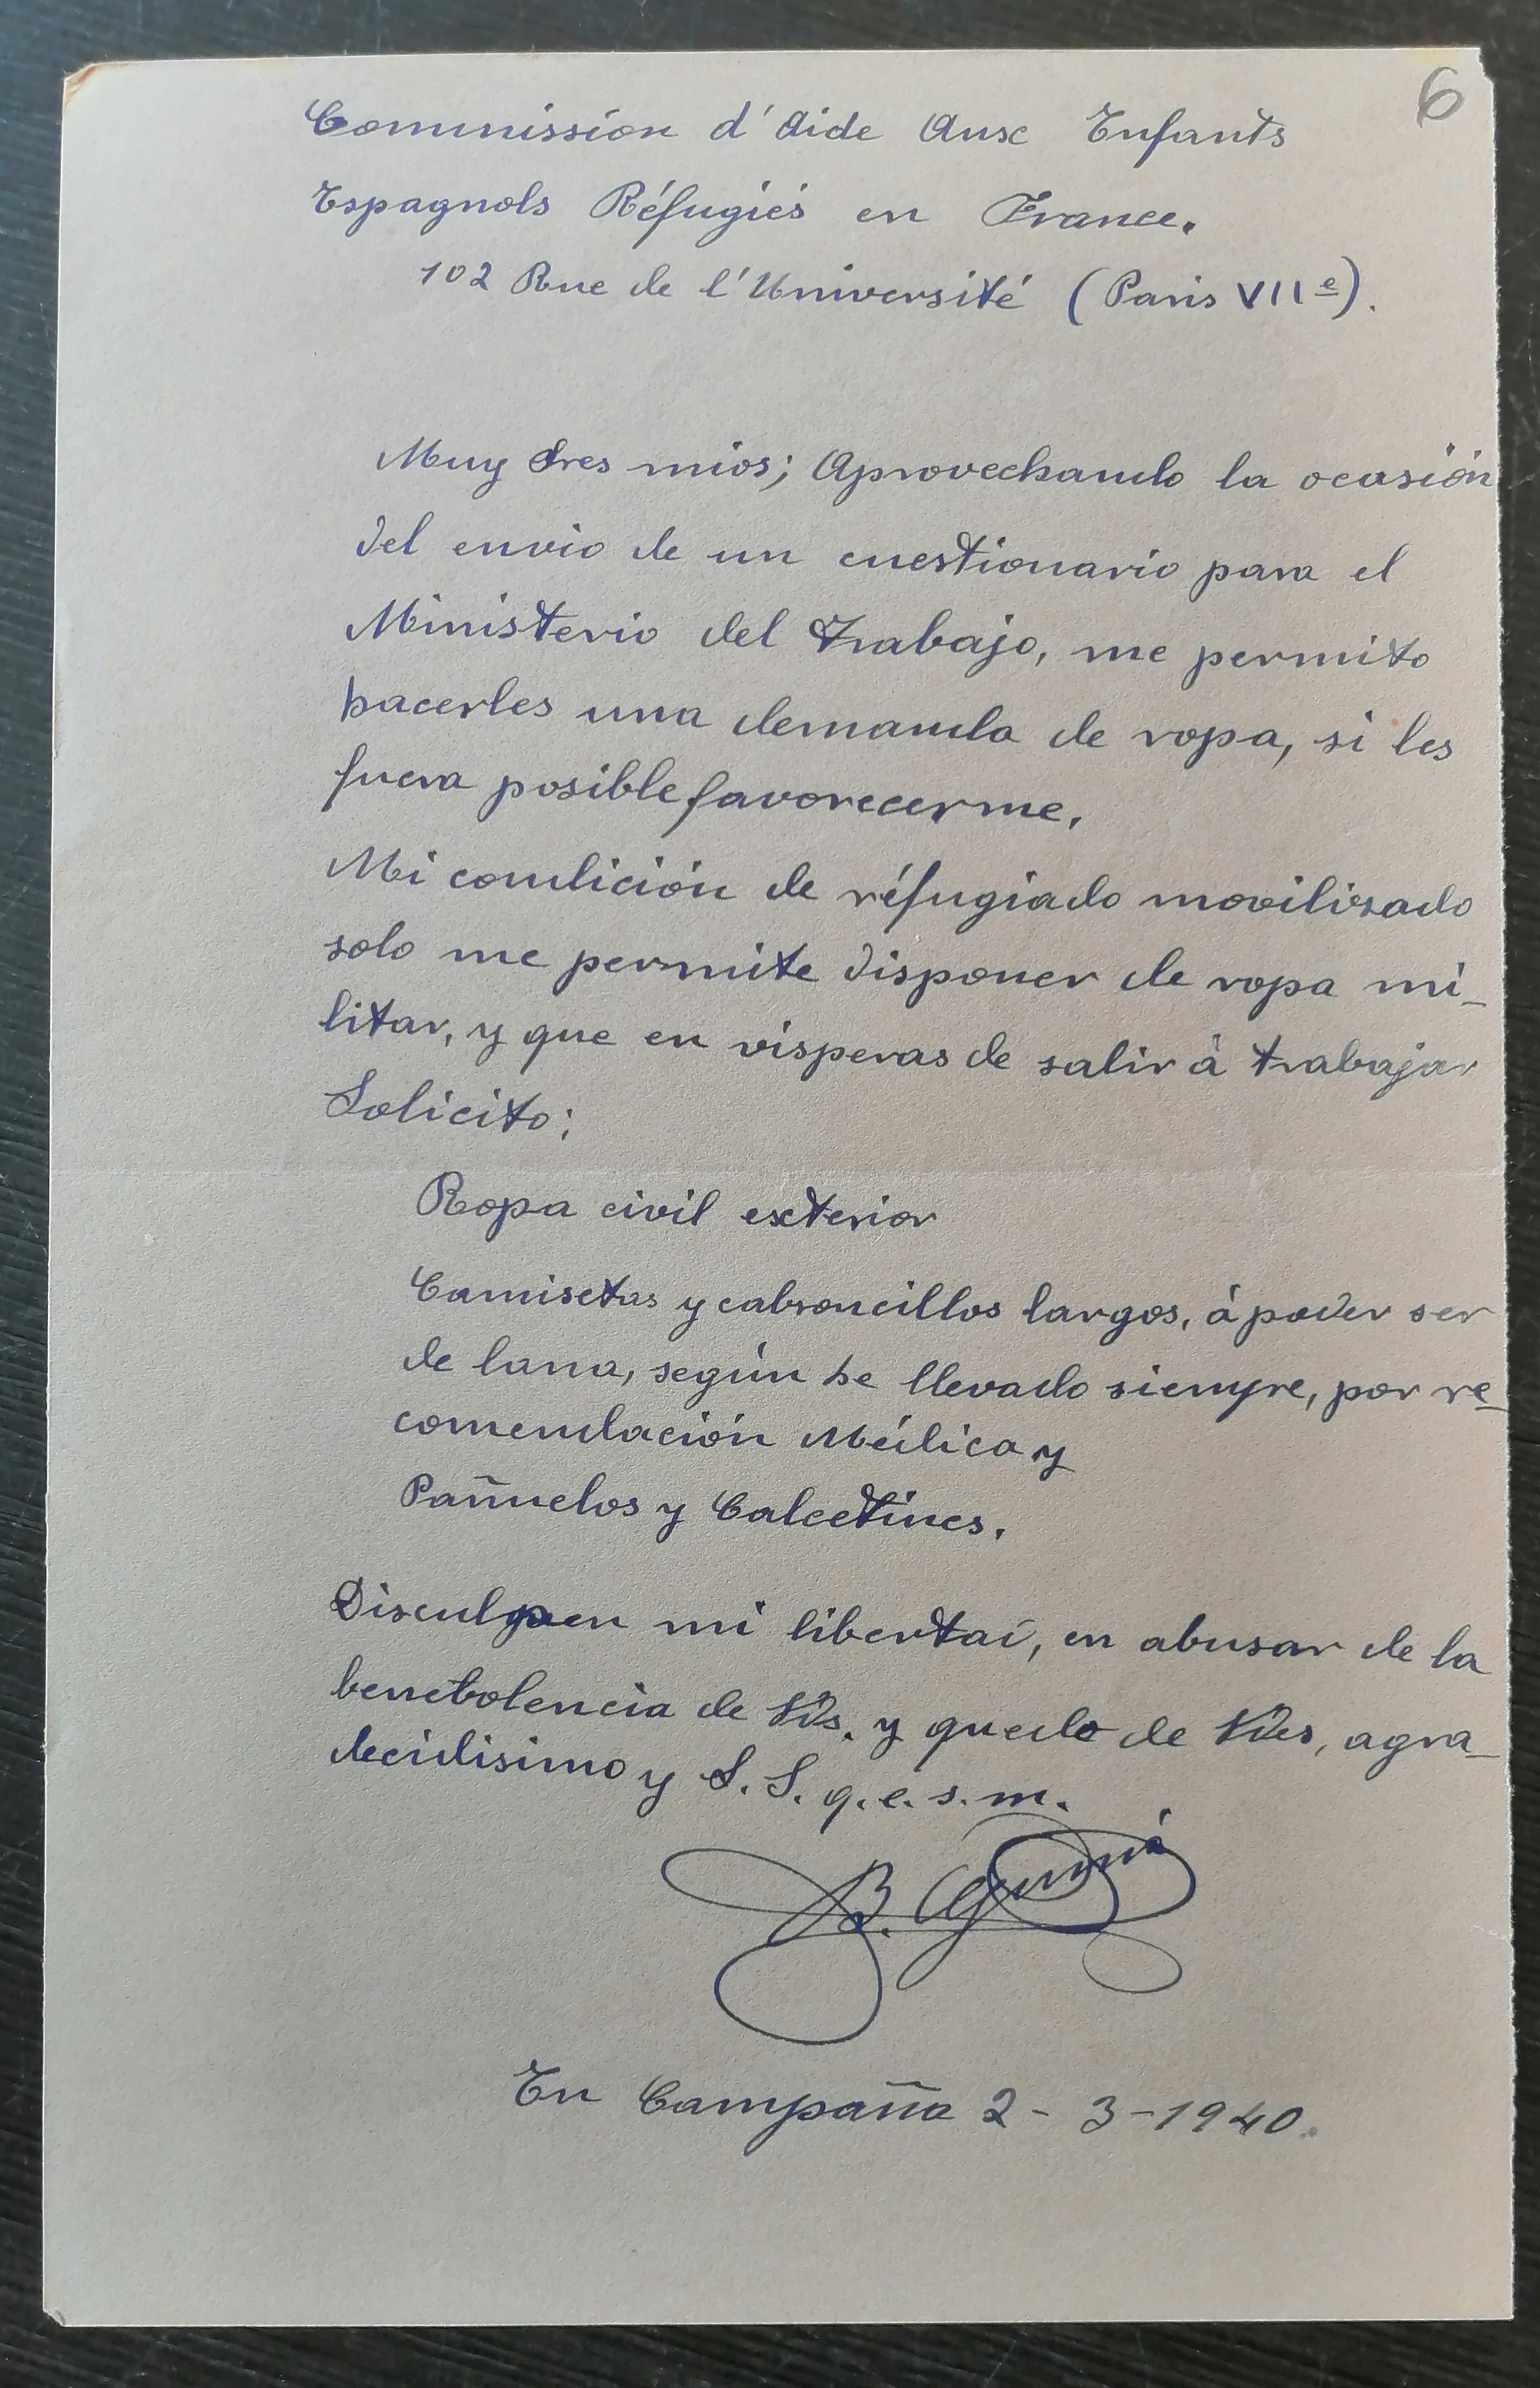 6
Commission d'Aide Aux Enfants
Espagnols Réfugiés en France.
102 Rue de l'Université (Paris VIIe).
Muy Sres mios; Aprovechando la ocasión
del envio de un cuestionario para el
Ministerio del Trabajo, me permito
hacerles una demanda de ropa, si les
fuera posible favorecerme.
Mi condición de réfugiado movilizado
solo me permite disponer de ropa mi-
litar, y que en visperas de salir à trabajar
Solicito:
Ropa civil exterior
Camisetas y calzoncillos largos, à poder ser
de lana, según he llevado siempre, por re-
comendación Médica y
Pañuelos y Calcetines.
Disculpen mi libertad, en abusar de la
benebolencia de Vds. y quedo de Vdes, agra-
decidisimo y S. S. q. e. s. m.
B.
En Campaña 2-3-1940.